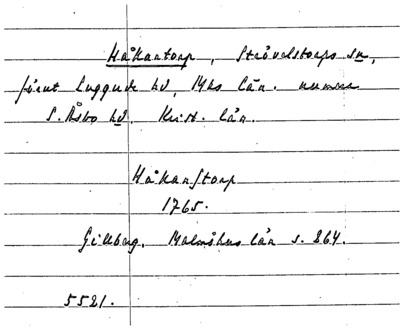 Håkantorp, Strövelstorps sn,
förut Luggude hd, Mhs län. numera
S. Åsbo hd. Krist. län.
Håkanstorp
1765.
Gillberg, Malmöhus län s. 264.
5521.